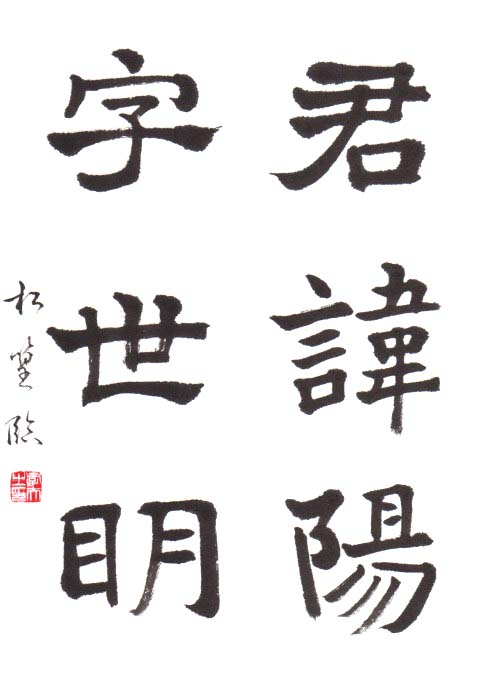 君諱陽
字世明
松篁臨